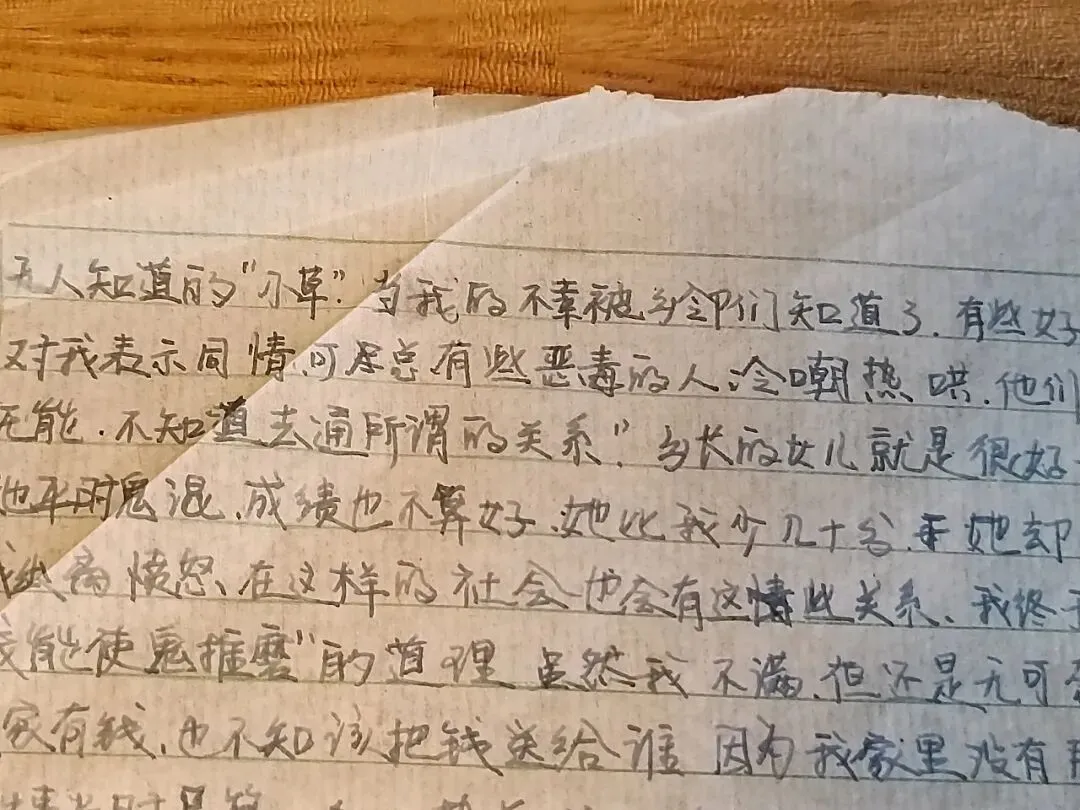 无人知道的“小草”.当我的不幸被乡邻们知道了.有些好
对我表示同情,可是总有些恶毒的人冷嘲热哄.他们
无能.不知道去通所谓的关系”.乡长的女儿就是很好
她平时鬼混.成绩也不算好.她比我少几十分.她却
我
愤怒、在这样的社会也会有这情些关系、我终于
能使鬼推磨”的道理 虽然我不满.但还是无可
家有钱.也不知该把钱送给谁 因为我家里没有